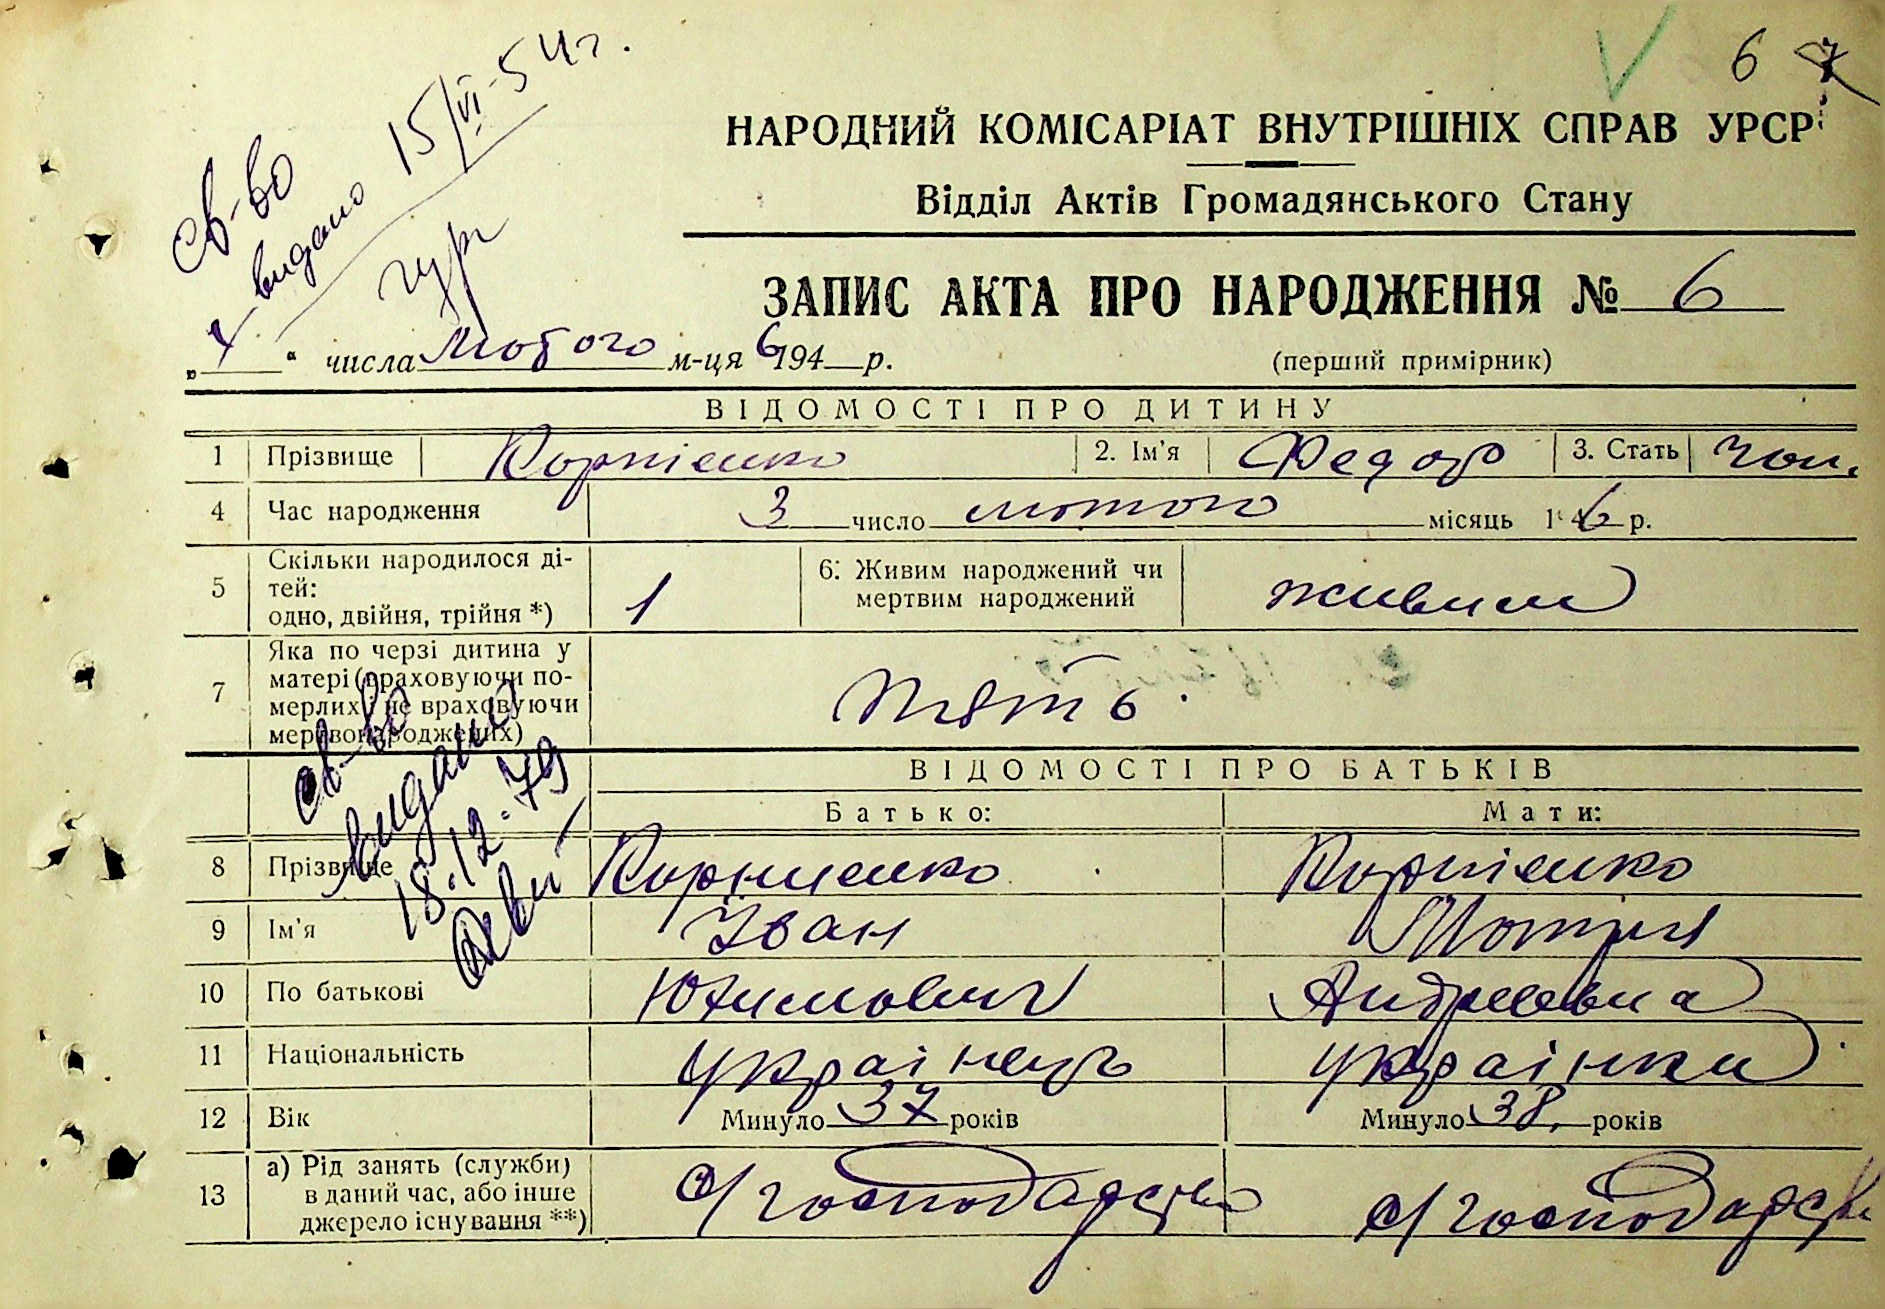 6 7
св-во
видано 15/VI-54 г.
НАРОДНИЙ КОМІСАРІАТ ВНУТРІШНІХ СПРАВ УРСР
Відділ Актів Громадянського Стану
ЗАПИС АКТА ПРО НАРОДЖЕННЯ № 6
„ “ числа Лютого м-ця 6 194 р.
(перший примірник)
ВІДОМОСТІ ПРО ДИТИНУ
1 Прізвище Корнієнко 2. Ім'я Федор 3. Стать чол.
4 Час народження 3 число лютого місяць 1946 р.
5 Скільки народилося ді-
тей:
одно, двійня, трійня *) 1
6. Живим народжений чи
мертвим народжений живим
7 Яка по черзі дитина у
матері (враховуючи по-
мерлих і не враховуючи
мертвонароджених) пять
св-во
видано
18.12.79
ВІДОМОСТІ ПРО БАТЬКІВ
Батько: Мати:
8 Прізвище Корниенко Корнієнко
9 Ім'я Іван Мотря
10 По батькові Юхимович Андреевна
11 Національність українець українка
12 Вік Минуло 37 років Минуло 38. років
13 а) Рід занять (служби)
в даний час, або інше
джерело існування **)
с/господарство с/господарств